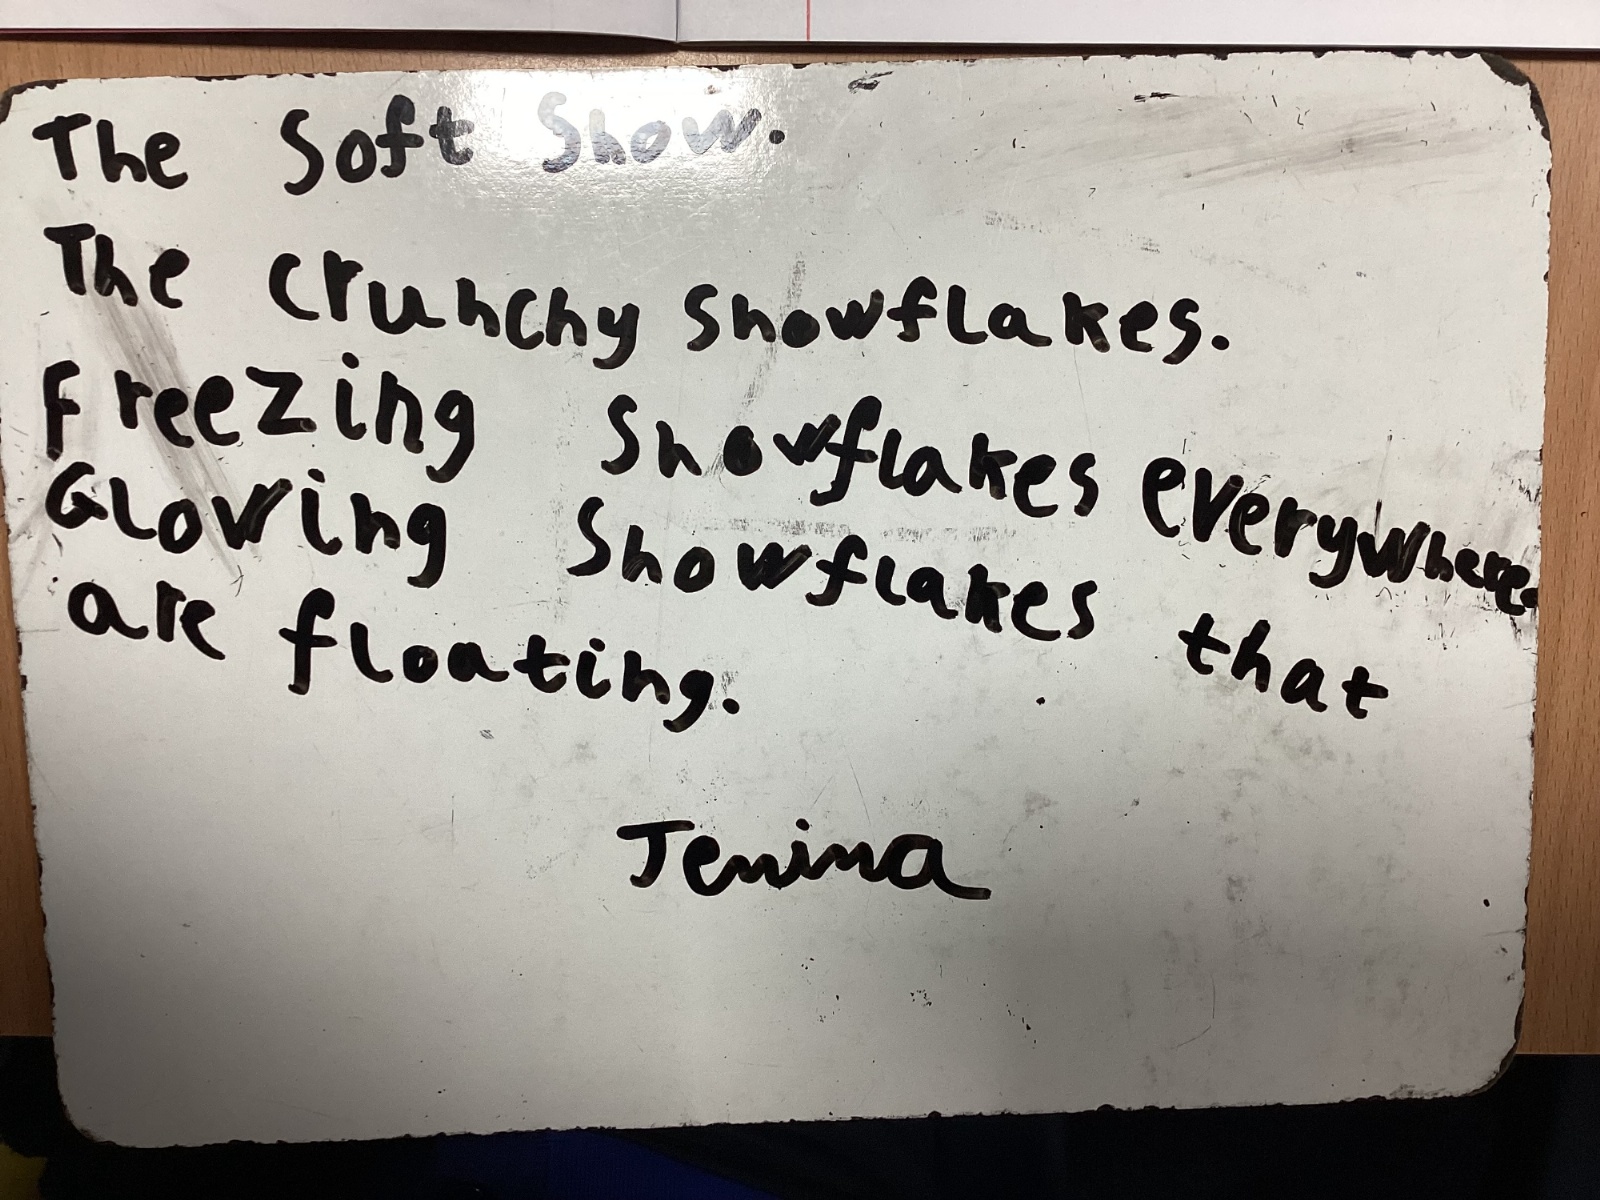 The Soft Snow.
The crunchy snowflakes.
Freezing Snowflakes everywhere.
Glowing Snowflakes that
are floating.
Jenina